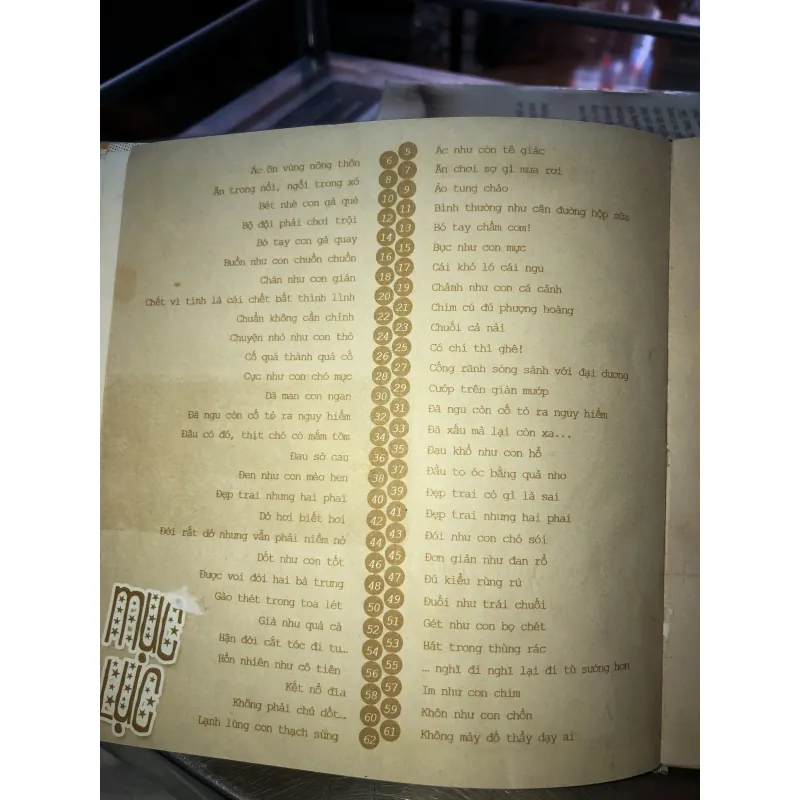 5 Ác như con tê giác
Ác ôn vùng nông thôn 6
7 Ăn chơi sợ gì mưa rơi
Ăn trong nồi, ngồi trong xó 8
9 Áo tung chảo
Bét nhè con gà què 10
11 Bình thường như cân đường hộp sữa
Bộ đội phải chơi trội 12
13 Bó tay chấm com!
Bó tay con gà quay 14
15 Bực như con mực
Buồn như con chuồn chuồn 16
17 Cái khó ló cái ngu
Chán như con gián 18
19 Chảnh như con cá cảnh
Chết vì tình là cái chết bất thình lình 20
21 Chim cú đú phượng hoàng
Chuẩn không cần chỉnh 22
23 Chuối cả nải
Chuyện nhỏ như con thỏ 24
25 Có chí thì ghê!
Cố quá thành quá cố 26
27 Cống rãnh sóng sánh với đại dương
Cực như con chó mực 28
29 Cướp trên giàn mướp
Dã man con ngan 30
31 Đã ngu còn cố tỏ ra nguy hiểm
Đã ngu còn cố tỏ ra nguy hiểm 32
33 Đã xấu mà lại còn xa...
Đâu có đó, thịt chó có mắm tôm 34
35 Đau khổ như con hổ
Đau sờ cau 36
37 Đầu to óc bằng quả nho
Đen như con mèo hen 38
39 Đẹp trai có gì là sai
Đẹp trai nhưng hai phai 40
41 Đẹp trai nhưng hai phai
Dở hơi biết bơi 42
43 Đói như con chó sói
Đời rất dở nhưng vẫn phải niềm nở 44
45 Đơn giản như đan rổ
Dốt như con tốt 46
47 Đủ kiểu rừng rú
Được voi đòi hai bà trưng 48
49 Đuối như trái chuối
Gào thét trong toa lét 50
51 Gét như con bọ chét
Già như quả cà 52
53 Hát trong thùng rác
Hận đời cắt tóc đi tu… 54
55 … nghĩ đi nghĩ lại đi tù sướng hơn
Hồn nhiên như cô tiên 56
57 Im như con chim
Kết nổ đĩa 58
59 Khôn như con chồn
Không phải chú dốt… 60
61 Không mày đố thầy dạy ai
Lạnh lùng con thạch sùng 62
MỤC
LỤC